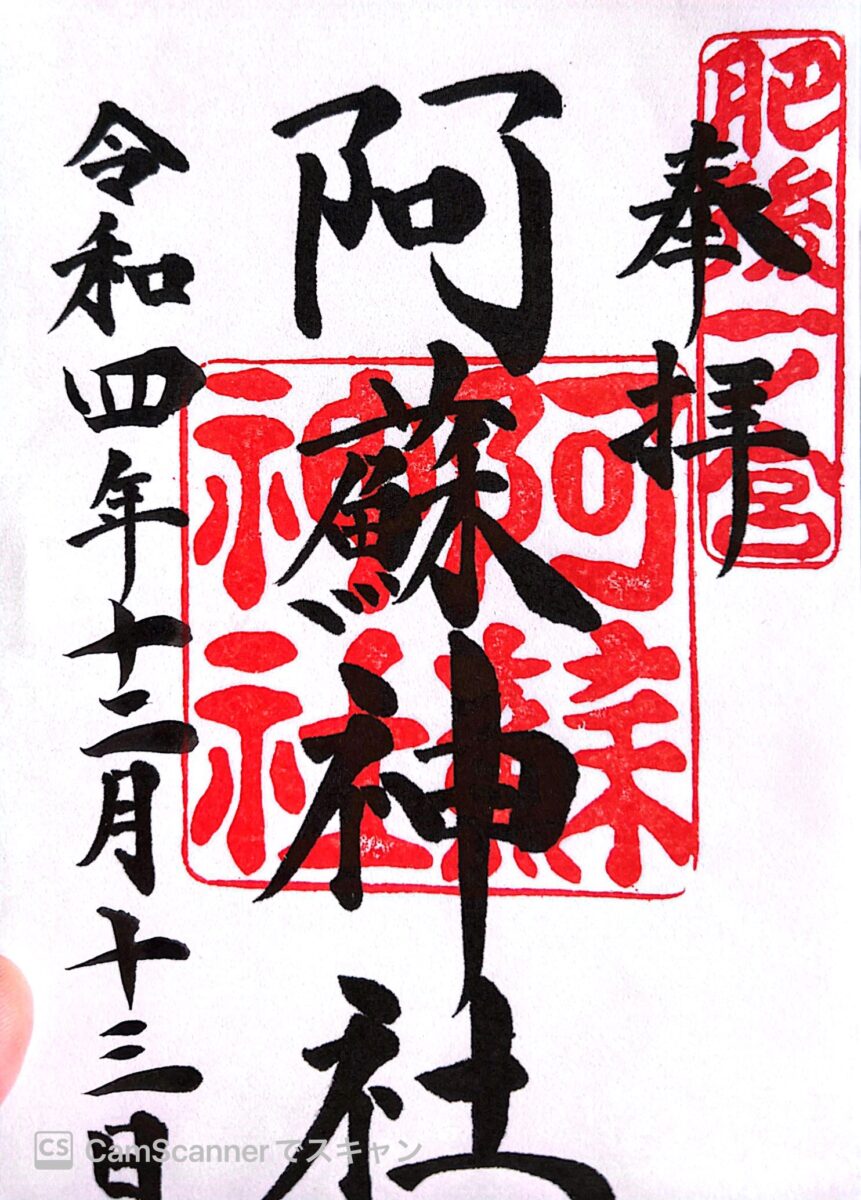 肥後一之宮
奉拝
阿蘇神社
阿蘇
神社
令和四年十二月十三日
CS CamScannerでスキャン